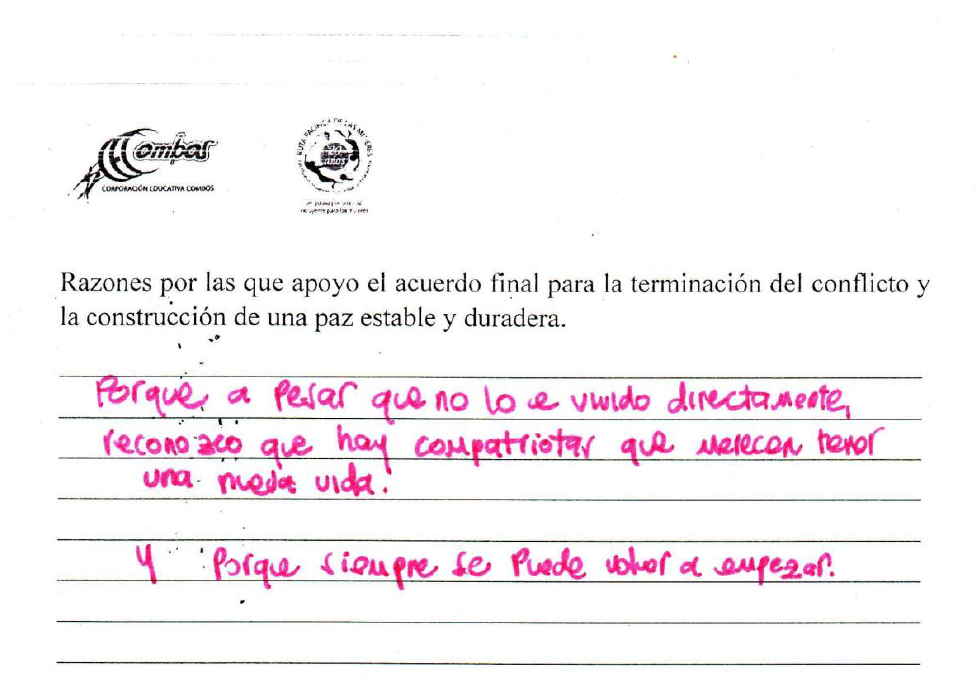 Combos
CORPORACIÓN EDUCATIVA COMBOS
RUTA PACIFICA DE LAS MUJERES
20 años
incluyente para las mujeres
Razones por las que apoyo el acuerdo final para la terminación del conflicto y
la construcción de una paz estable y duradera.
Porque, a pesar que no lo e vivido directamente,
reconozco que hay compatriotas que merecen tener
una nueva vida.
Y Porque siempre se Puede volver a empezar.